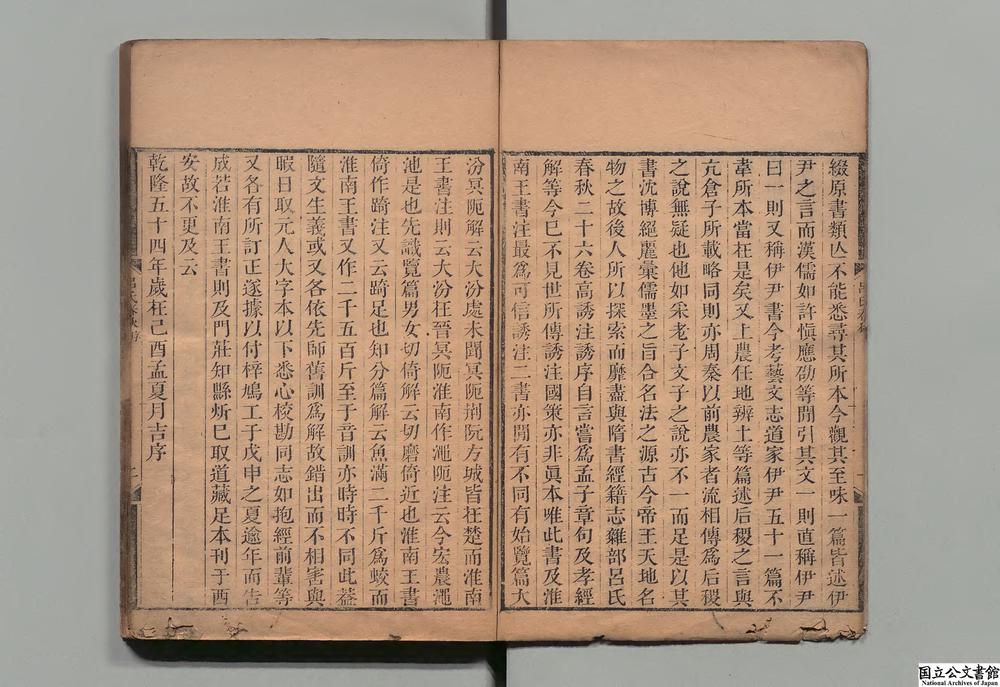 綴原書類亾不能悉尋其所本今觀其至味一篇皆述伊
尹之言而漢儒如許愼應劭等閒引其文一則直稱伊尹
曰一則又稱伊尹書今考藝文志道家伊尹五十一篇不
韋所本當在是矣又上農任地辨土等篇述后稷之言與
亢倉子所載略同則亦周秦以前農家者流相傳爲后稷
之說無疑也他如采老子文子之說亦不一而足是以其
書沈博絕麗彙儒墨之旨合名法之源古今帝王天地名
物之故後人所以探索而靡盡與隋書經籍志雜部呂氏
春秋二十六卷高誘注誘序自言嘗爲孟子章句及孝經
解等今已不見世所傳誘注國策亦非眞本唯此書及淮
南王書注最爲可信誘注二書亦閒有不同有始覽篇大
汾冥阨解云大汾處未聞冥阨荆阮方城皆在楚而淮南
王書注則云大汾在晉冥阨淮南作澠阨注云今宏農澠
池是也先識覽篇男女切倚解云切磨倚近也淮南王書
倚作踦注又云踦足也知分篇解云魚滿二千斤爲蛟而
淮南王書又作二千五百斤至于音訓亦時時不同此葢
隨文生義或又各依先師舊訓爲解故錯出而不相害與
暇日取元人大字本以下悉心校勘同志如抱經前輩等
又各有所訂正遂據以付梓鳩工于戊申之夏逾年而告
成若淮南王書則及門莊知縣炘已取道藏足本刊于西
安故不更及云
乾隆五十四年歲在己酉孟夏月吉序
呂氏春秋序
二
国立公文書館
National Archives of Japan